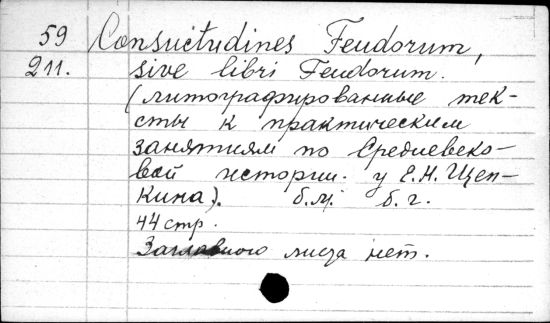 59 Consuetudines Feudorum,
211. sive libri Feudorum.
(литографированные тек-
сты к практическим
занятиям по Средневеко-
вой истории. у Е.Н. Щеп-
кина). б.м. б.г.
44 стр.
Заглавного листа нет.